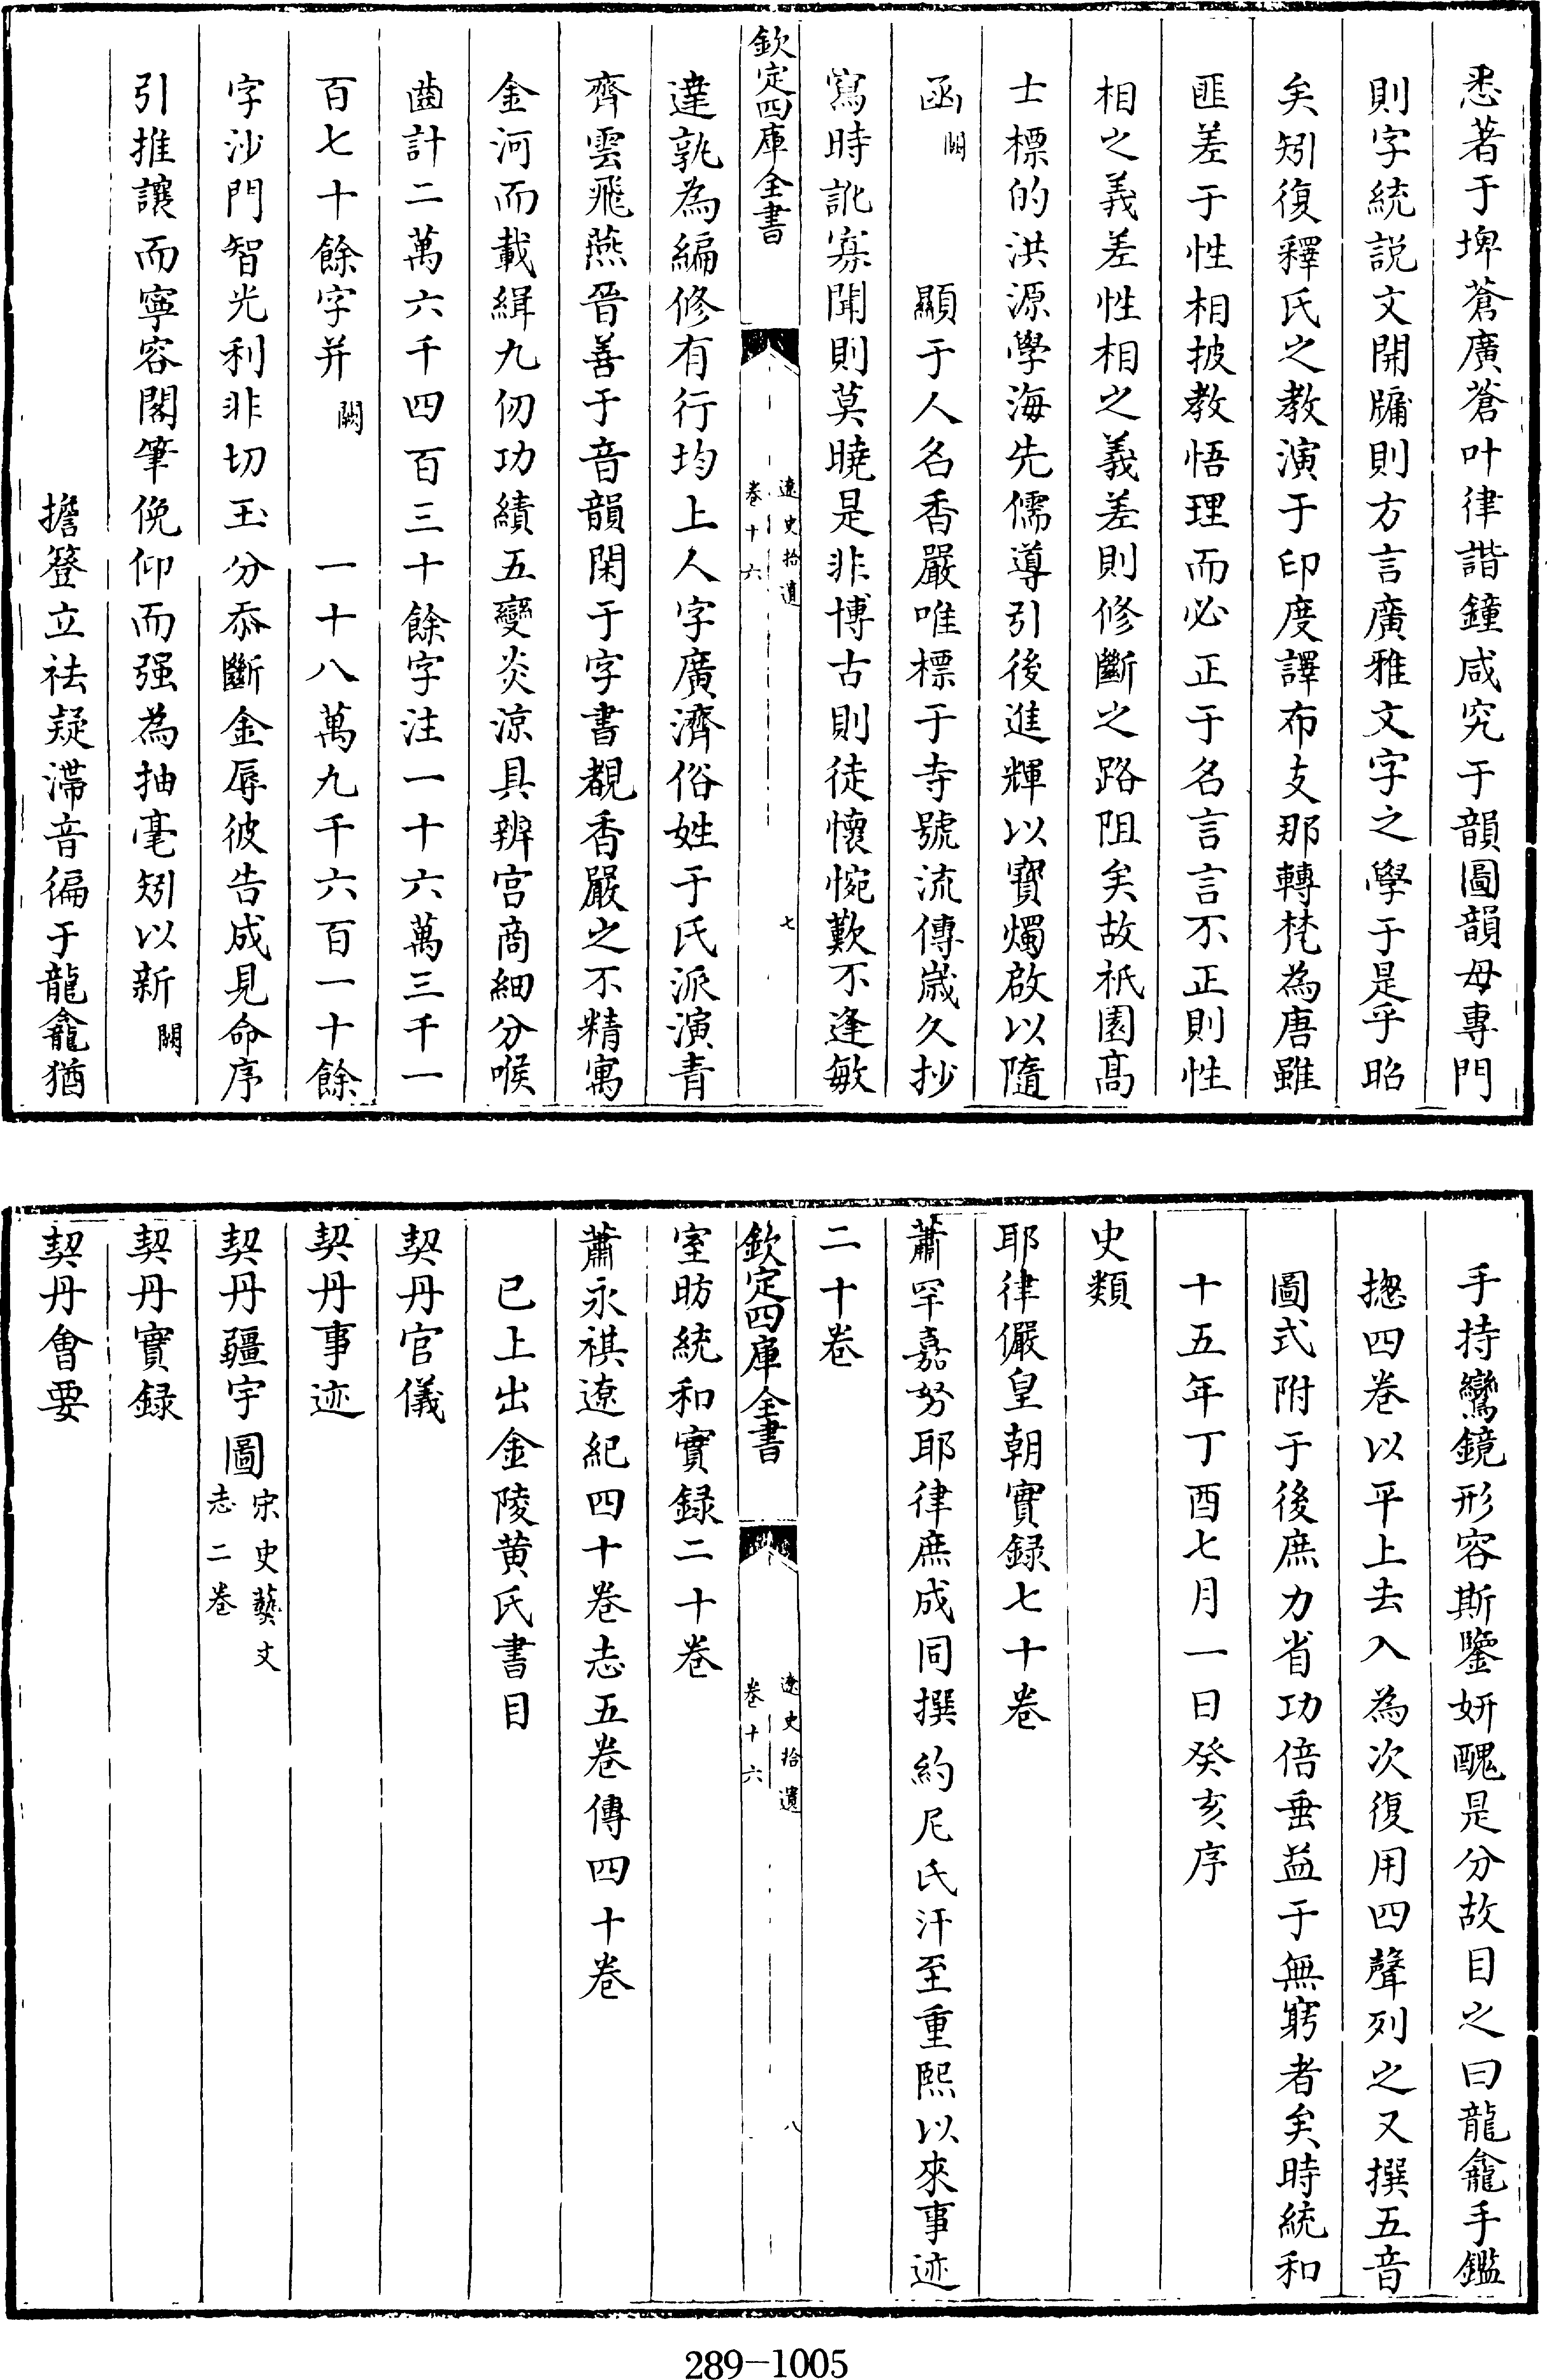 悉著于埤蒼廣蒼叶律諧鐘咸究于韻圖韻母專門
則字統説文開牗則方言廣雅文字之學于是乎昭
矣矧復釋氏之教演于印度譯布支那轉梵為唐雖
匪差于性相披教悟理而必正于名言言不正則性
相之義差性相之義差則修斷之路阻矣故祇園髙
士標的洪源學海先儒導引後進輝以寳燭啟以隨
函闕顯于人名香嚴唯標于寺號流傳嵗久抄
寫時訛寡聞則莫曉是非博古則徒懷惋歎不逢敏
欽定四庫全書
遼史拾遺
卷十六
七
達孰為編修有行均上人字廣濟俗姓于氏派演青
齊雲飛燕晉善于音韻閑于字書覩香嚴之不精寓
金河而載緝九仞功績五變炎涼具辨宫商細分喉
齒計二萬六千四百三十餘字注一十六萬三千一
百七十餘字并闕一十八萬九千六百一十餘
字沙門智光利非切玉分忝斷金辱彼告成見命序
引推讓而寧容閣筆俛仰而强為抽毫矧以新闕
擔簦立祛疑滯音徧于龍龕猶
手持鸞鏡形容斯鑒妍醜是分故目之曰龍龕手鑑
揔四卷以平上去入為次復用四聲列之又撰五音
圖式附于後庶力省功倍垂益于無窮者矣時統和
十五年丁酉七月一日癸亥序
史類
耶律儼皇朝實録七十卷
蕭罕嘉努耶律庶成同撰約尼氏汗至重熙以來事迹
二十卷
欽定四庫全書
遼史拾遺
卷十六
八
室昉統和實録二十卷
蕭永祺遼紀四十卷志五卷傳四十卷
已上出金陵黄氏書目
契丹官儀
契丹事迹
契丹疆宇圖宋史藝文志二卷
契丹實録
契丹會要
289-1005